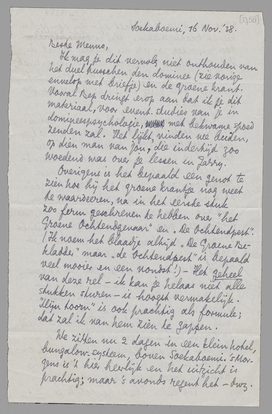 [1938]
Soekaboemi, 16 Nov. '38.
Beste Menno,
Ik mag je dit vervolg niet onthouden van
het duel tusschen den dominee (zie vorige
envelop met briefje) en de Groene krant.
Vooral Bep dringt erop aan dat ik je dit
materiaal, voor event. studies van je in
domineespsychologie, met bekwame spoed
zenden zal. Het lijkt, vinden we beiden,
op dien man van Jou, die indertijd zoo
woedend was over je lessen in
Overigens is het bepaald een genot te
zien hoe hij het groene krantje nog weet
te waardeeren, na in het eerste stuk
zoo ferm geschreven te hebben over "het
Groene Ochtendgevaar" en "De Ochtendpest".
(Ik noem het blaadje altijd "De Groene
maar "De Ochtendpest" is bepaald
veel mooier en een vondst!) – Het geheel
van deze rel – ik kan je helaas niet alle
stukken sturen – is hoogst vermakelijk.
"Mijn toorn" is ook prachtig als formule;
dat zal ik van hem zien te gappen.
We zitten nu 2 dagen in een klein hotel,
bungalow-systeem, boven Soekaboemi. 's Mor-
gens is 't hier heerlijk en het uitzicht is
prachtig; maar 's avonds regent het –